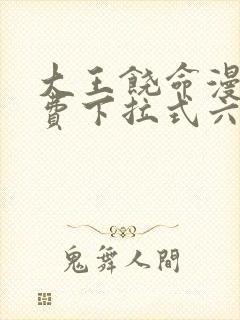 大王饶命漫
费下拉式六
鬼舞人間